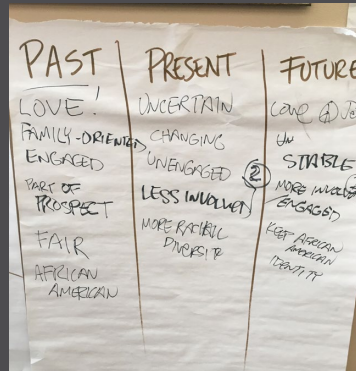 PAST
LOVE!
FAMILY-ORIENTED
ENGAGED
PART OF
PROSPECT
FAIR
AFRICAN
AMERICAN
PRESENT
UNCERTAIN
CHANGING
UNENGAGED
LESS INVOLVED
MORE RACIAL
DIVERSITY
FUTURE
LOVE @
UN
STABLE
2
MORE INVOLVE
ENGAGED
KEEP AFRICAN
AMERICAN
IDENTITY